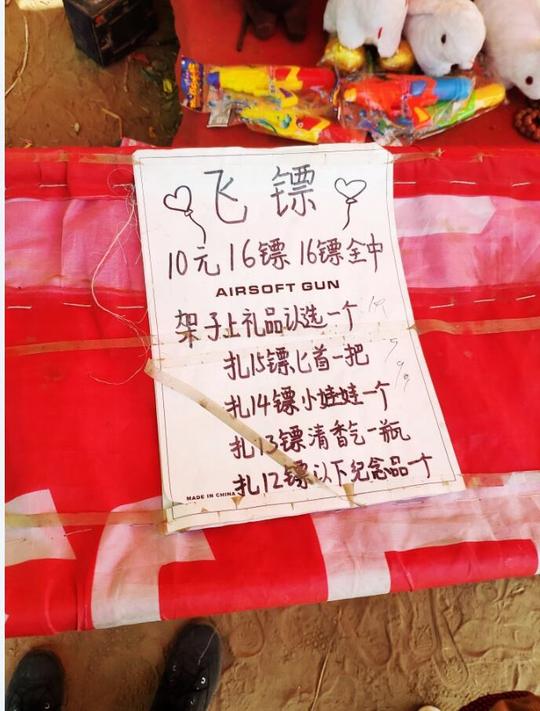 飞镖
10元16镖 16镖全中
AIRSOFT GUN
架子上礼品认选一个
扎15镖匕首一把
扎14镖小娃娃一个
扎13镖清香乞一瓶
扎12镖以下纪念品一个
MADE IN CHINA